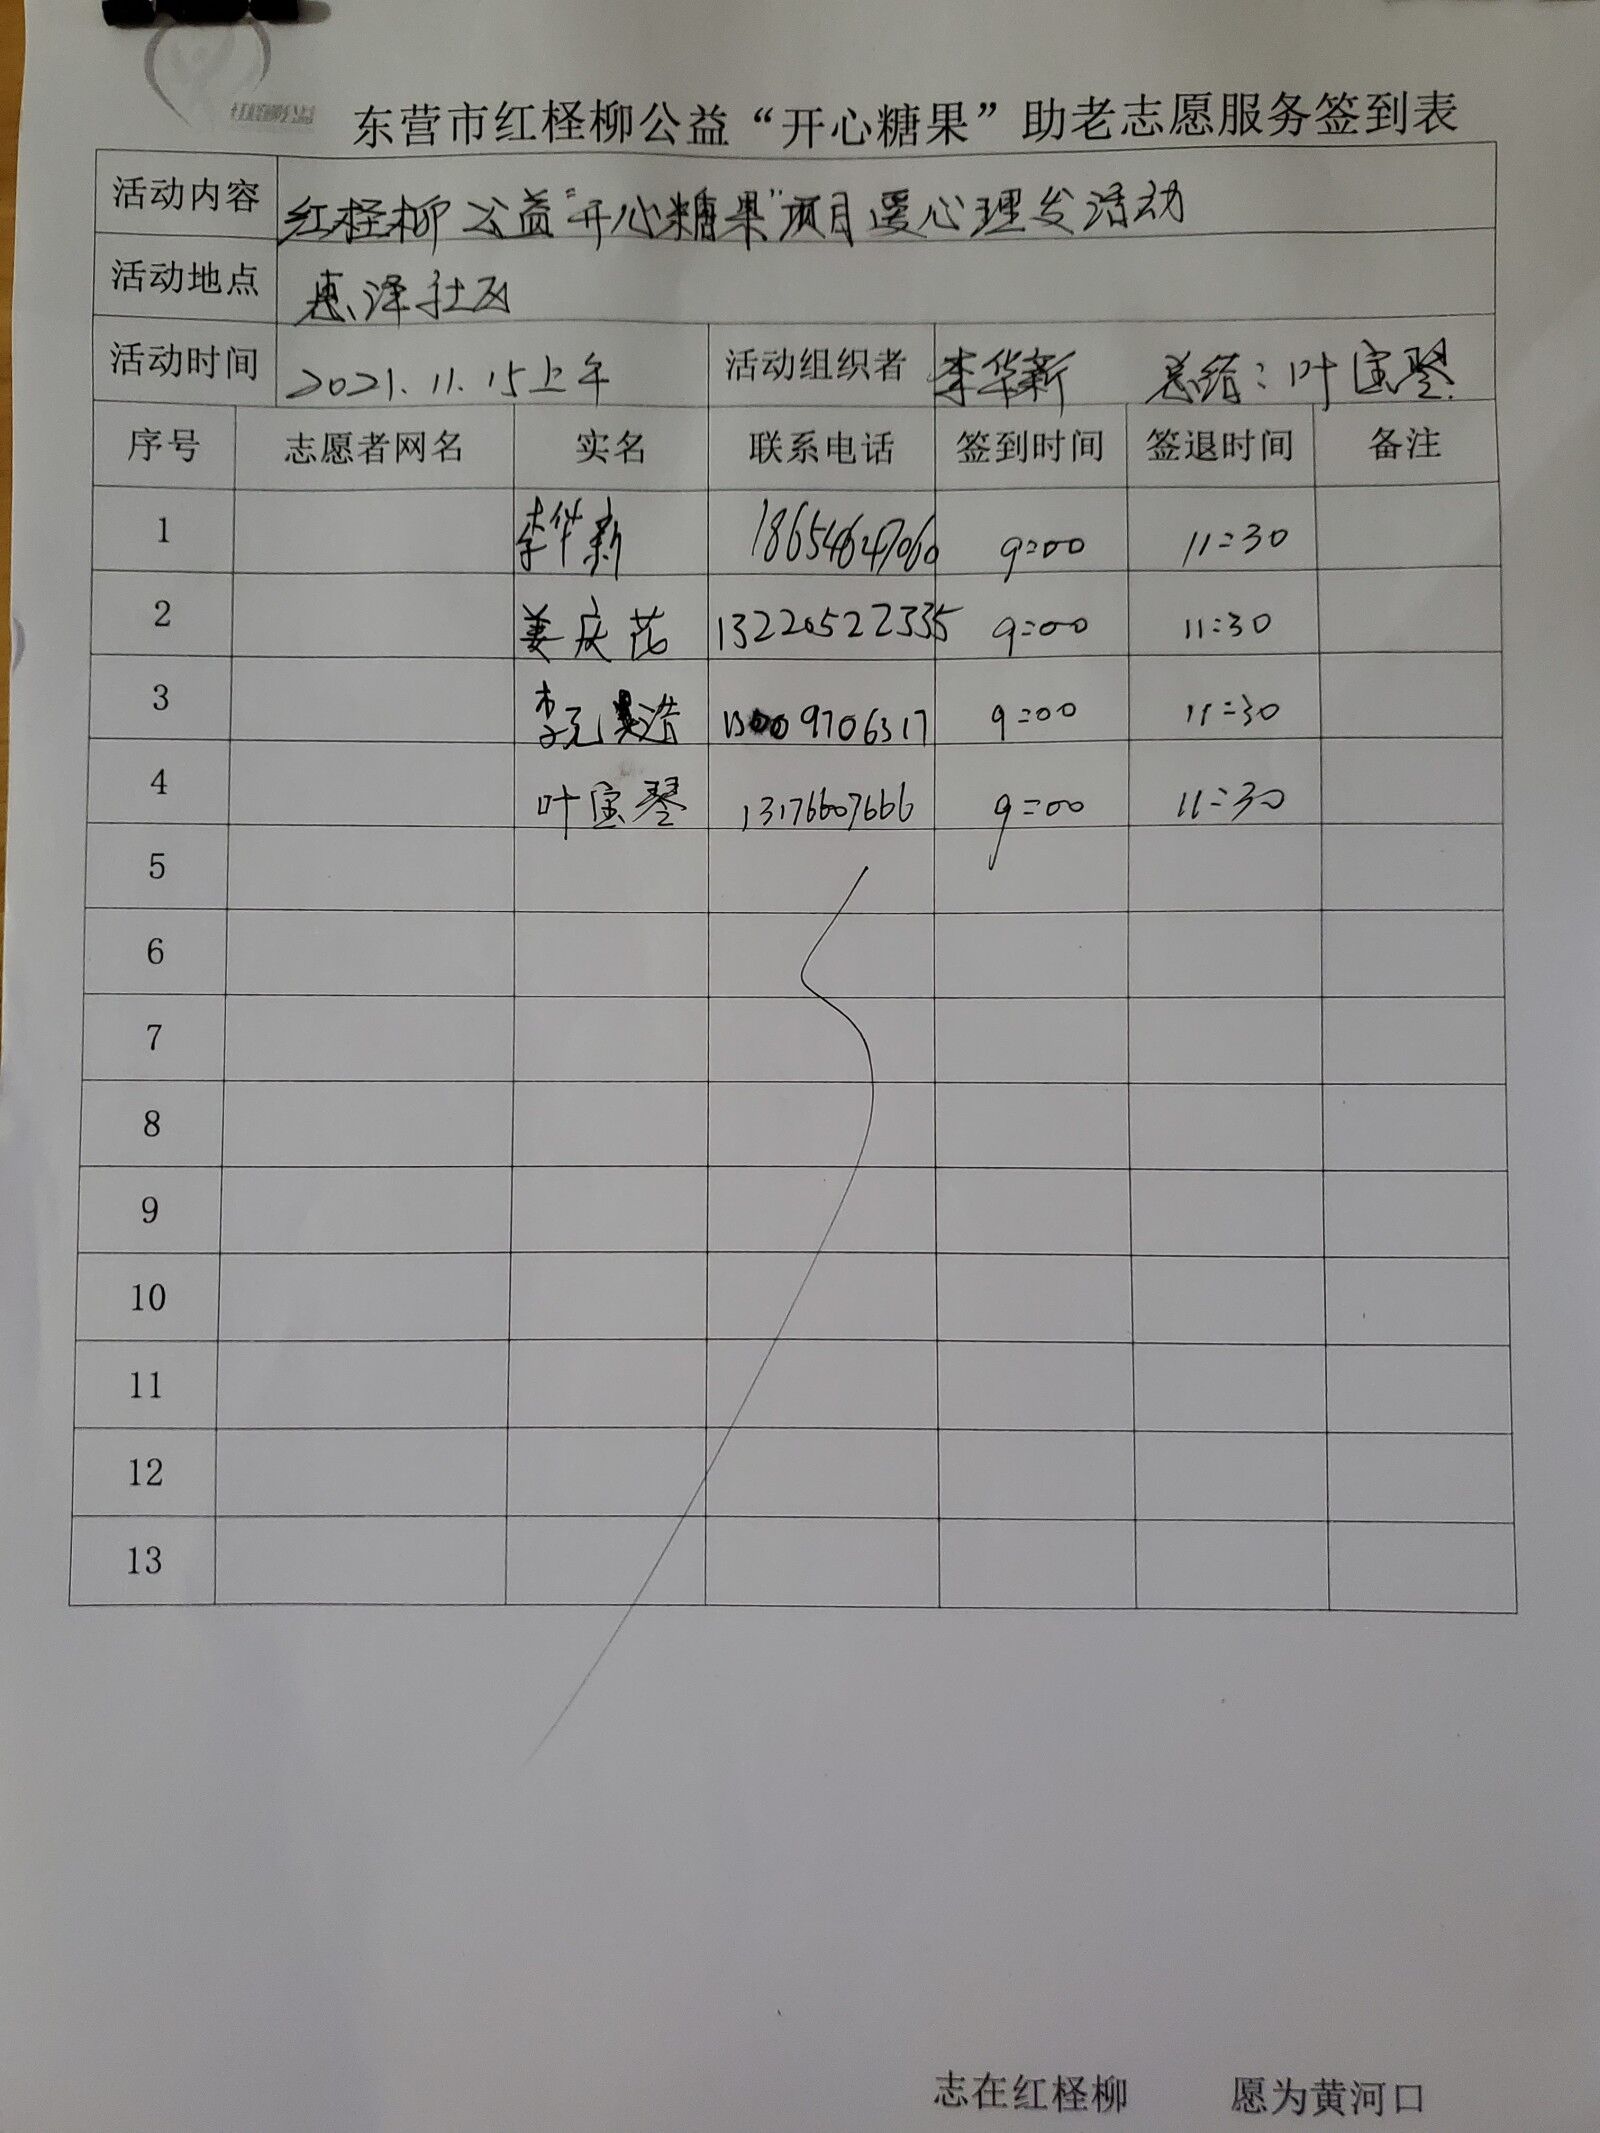 红柽柳公益
东营市红柽柳公益“开心糖果”助老志愿服务签到表
活动内容 红柽柳公益“开心糖果”项目暖心理发活动
活动地点 惠泽社区
活动时间 2021.11.15上午 活动组织者 李华新 总结:叶宝琴
序号 志愿者网名 实名 联系电话 签到时间 签退时间 备注
1 李华新 9:00 11:30
2 姜庆花 13220522335 9:00 11:30
3 9:00 11:30
4 叶宝琴 13176607666 9:00 11:30
5
6
7
8
9
10
11
12
13
志在红柽柳 愿为黄河口